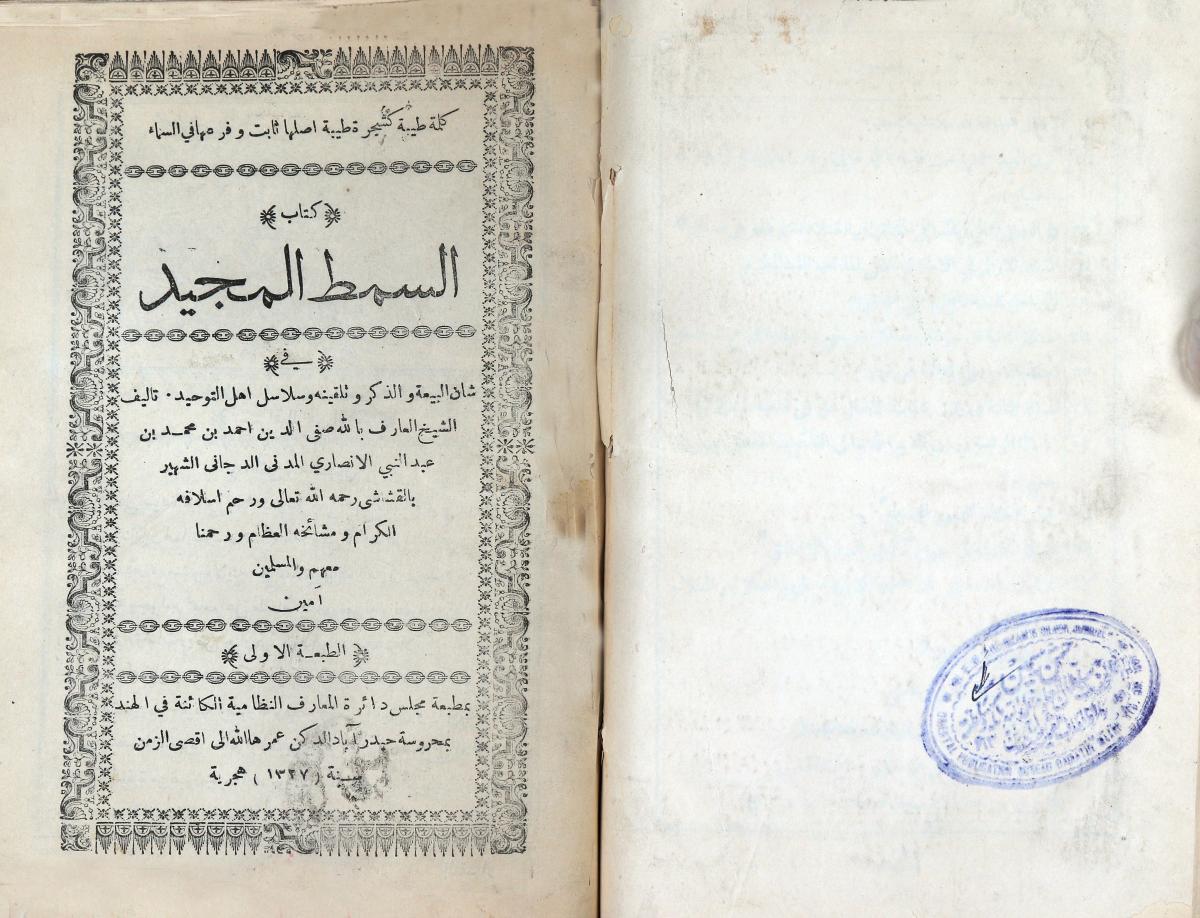 كلمة طيبة كشجرة طيبة اصلها ثابت وفرعها في السماء
كتاب
السمط المجيد
في
شان البيعة و الذكر و تلقينه وسلاسل اهل التوحيد ۰ تاليف
الشيخ العارف بالله صفى الدين احمد بن محمد بن
عبد النبي الانصاري المدنى الدجانى الشهير
بالقشاشى رحمه الله تعالى ورحم اسلافه
الكرام و مشائخه العظام و رحمنا
معهم والمسلمين
امين
الطبعة الاولى
بمطبعة مجلس دائرة المعارف النظامية الكائنة في الهند
بمحروسة حيدرآباد الدكن عمرها الله الى اقصى الزمن
سنة (۱۳۲۷) هجرية
SILVER JUBILEE